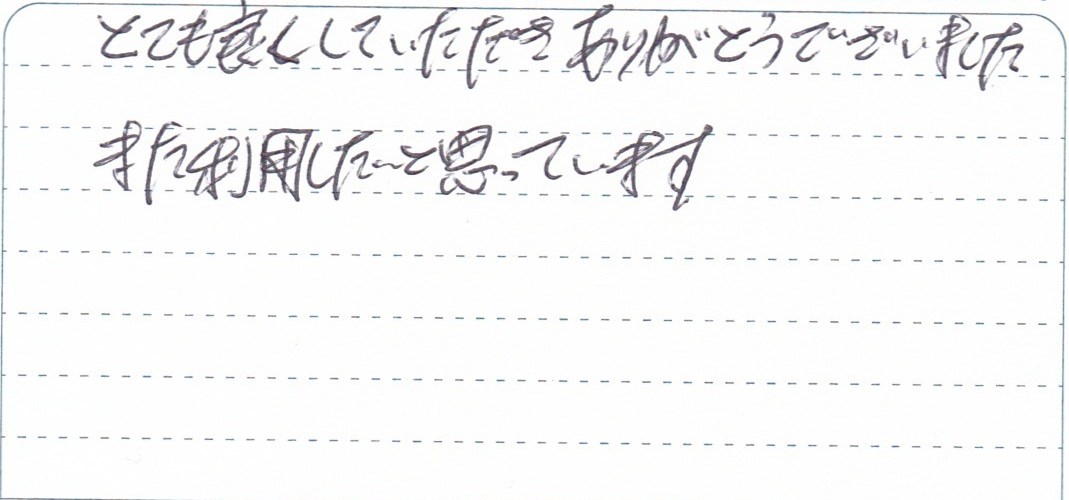 とても良くしていただき ありがとうございました
また利用したいと思っています